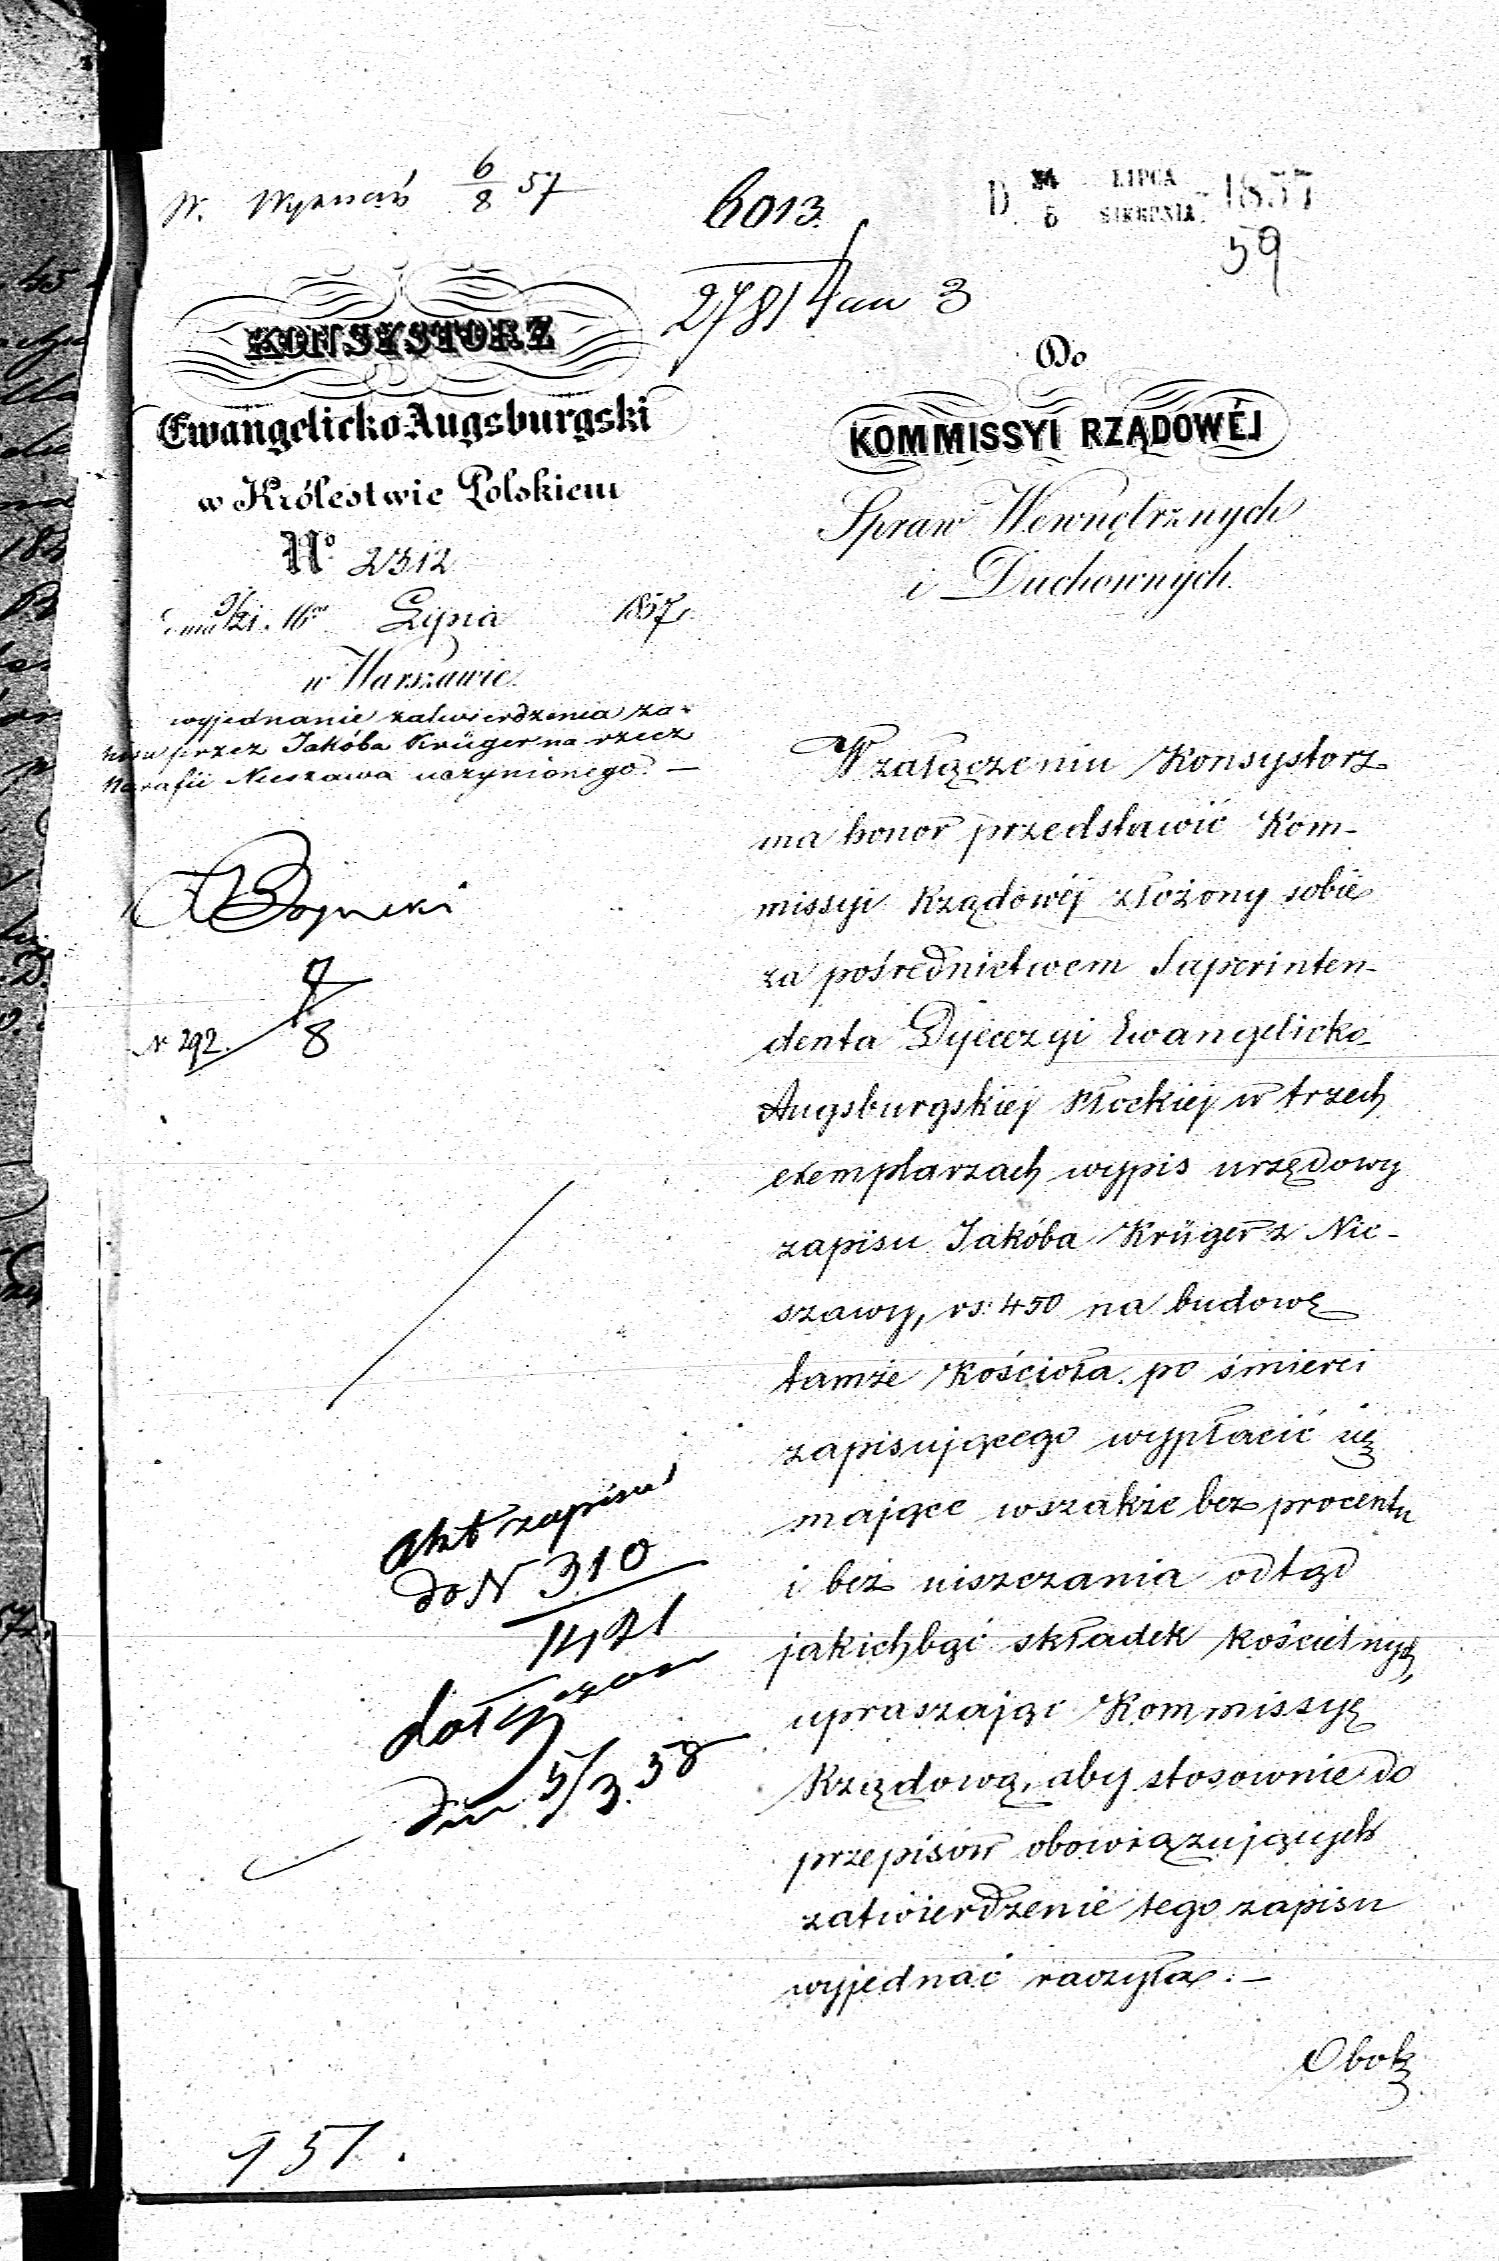 W. Wyznań 6/8 57
6013
27814 an 3
D. 24 LIPCA 1857
5 SIERPNIA
59
KONSYSTORZ
Ewangelicko Augsburgski
w Królestwie Polskiem
No 2312
dnia 16 Lipca 1857
w Warszawie
wyjednanie zatwierdzenia za-
pisu przez Jakóba Krüger na rzecz
Parafii Nieszawa uczynionego. —
7/8
N 292.
Akt zapisu
do N 310
1421
dołączono
dnia 5/3 58
151.
Do
KOMMISSYI RZĄDOWÉJ
Spraw Wewnętrznych
i Duchownych.
W załączeniu Konsystorz
ma honor przedstawić Kom-
missyi Rządowéj złożony sobie
za pośrednictwem Superinten-
denta Dyecezyi Ewangelicko-
Augsburgskiej Płockiej w trzech
exemplarzach wypis urzędowy
zapisu Jakóba Krüger z Nie-
szawy, rs: 450 na budowę
tamże Kościoła po śmierci
zapisującego wypłacić się
mające wszakże bez procentu
i bez uiszczania odtąd
jakichbąć składek kościelnych,
upraszając Kommissyę
Rządową, aby stosownie do
przepisów obowiązujących
zatwierdzenie tego zapisu
wyjednać raczyła. —
Obok